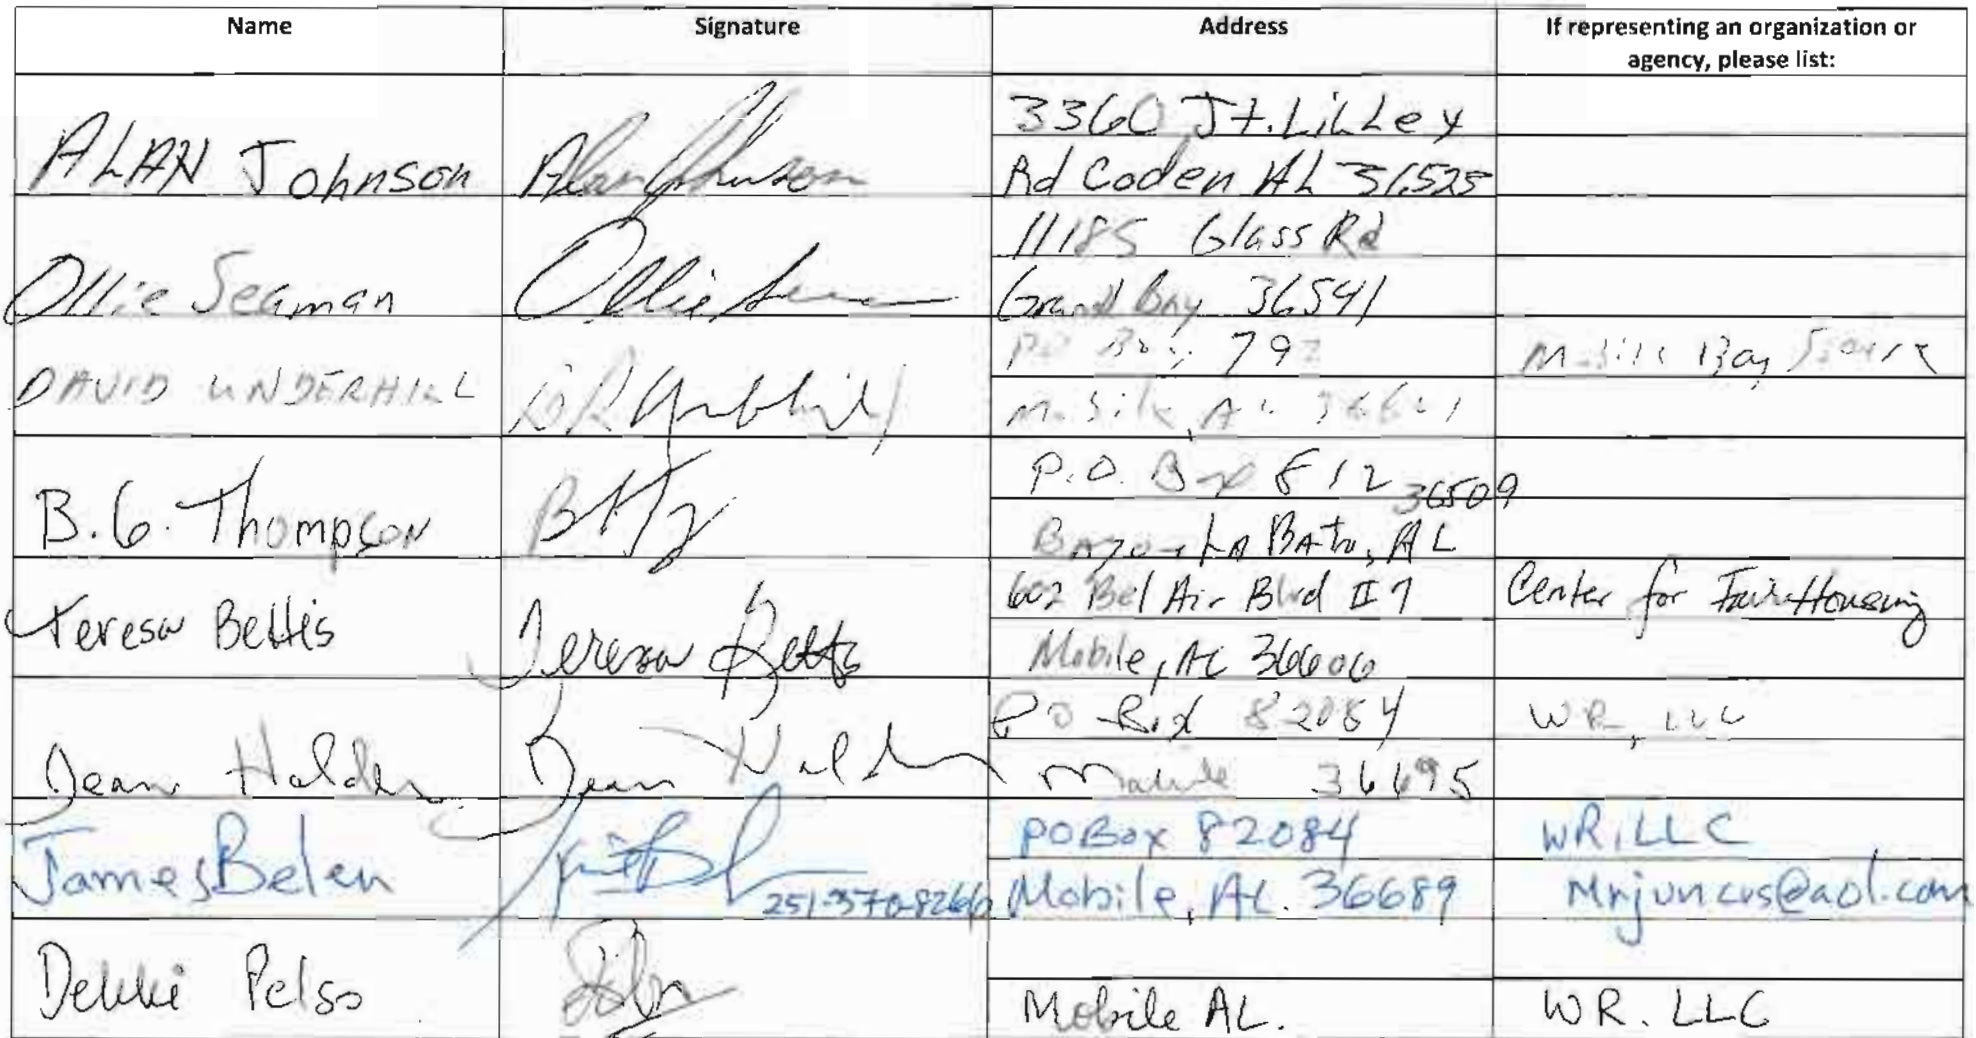 Name
Signature
Address
If representing an organization or
agency, please list:
ALAN Johnson
Alan Johnson
3360 Jt. LiLLey
Rd Coden AL
Ollie Seaman
Ollie
11185 Glass Rd
Grand Bay 36541
DAVID UNDERHILL
PO Box
Mobile, AL
Mobile Bay Sierra
B.G. Thompson
P.O. Box 812
36509
La Batre, AL
Teresa Bettis
Teresa Bettis
602 Bel Air Blvd
Mobile, AL 36606
Center for Fair Housing
Jean
Jean
PO Box 82084
Mobile 36695
WR, LLC
James Belen
251-370-8266
PO Box 82084
Mobile, AL. 36689
WR, LLC
Mrjuncus@aol.com
Pelso
Mobile AL.
WR. LLC